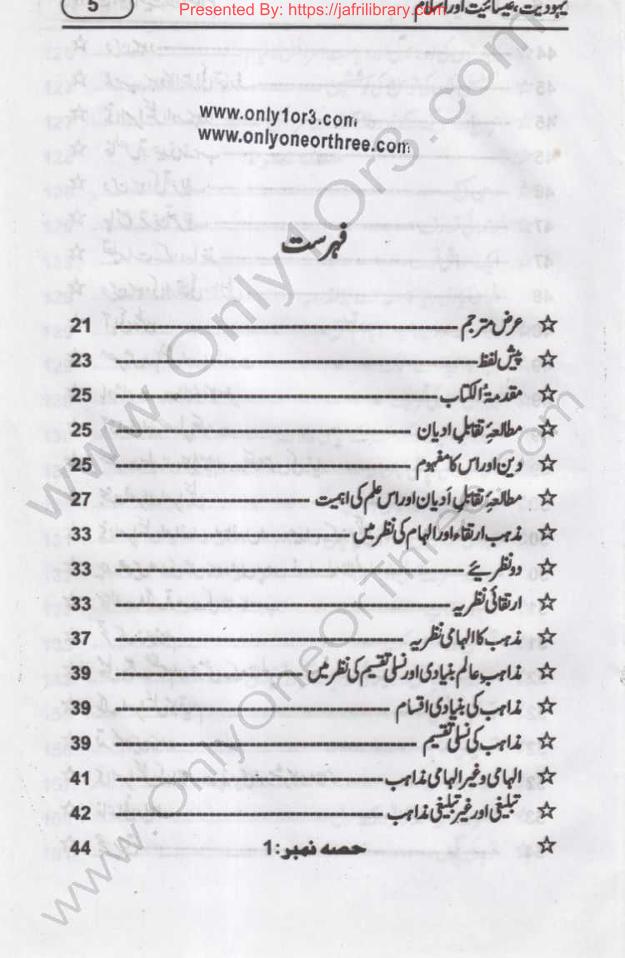 یہودیت، عیسائیت اور اسلام 5
Presented By: https://jafrilibrary.com
www.only1or3.com
www.onlyoneorthree.com
فہرست
☆ عرض مترجم 21
☆ پیش لفظ 23
☆ مقدمۃ الکتاب 25
☆ مطالعۂ تقابلِ ادیان 25
☆ دین اور اس کا مفہوم 25
☆ مطالعۂ تقابلِ اَدیان اور اس علم کی اہمیت 27
☆ مذہب ارتقاء اور الہام کی نظر میں 33
☆ دو نظریئے 33
☆ ارتقائی نظریہ 33
☆ مذہب کا الہامی نظریہ 37
☆ مذاہب عالم بنیادی اور نسلی تقسیم کی نظر میں 39
☆ مذاہب کی بنیادی اقسام 39
☆ مذاہب کی نسلی تقسیم 39
☆ الہامی و غیر الہامی مذاہب 41
☆ تبلیغی اور غیر تبلیغی مذاہب 42
☆ حصہ نمبر: 1 44
www.Only1Or3.com
www.OnlyOneOrThree.com